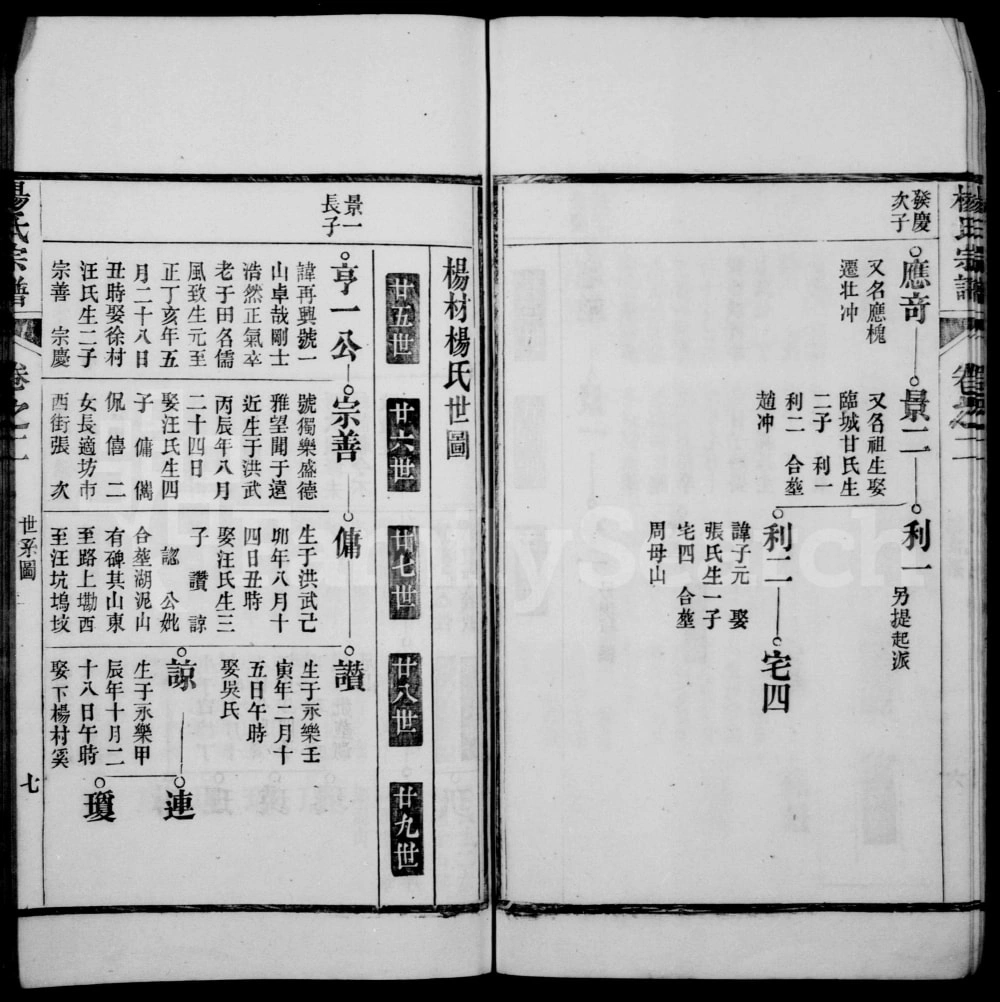 楊氏宗譜
卷之二
發慶
次子
應奇
又名應槐
遷壯冲
景二
又名祖生娶
臨城甘氏生
二子　利一
利二　合塟
趙冲
利一
另提起派
利二
諱子元　娶
張氏生一子
宅四　合塟
周母山
宅四
楊材楊氏世圖
廿五世
廿六世
廿七世
廿八世
廿九世
景一
長子
亨一公
諱再興號一
山卓哉剛士
浩然正氣卒
老于田名儒
風致生元至
正丁亥年五
月二十八日
丑時娶徐村
汪氏生二子
宗善　宗慶
宗善
號獨樂盛德
雅望聞于遠
近生于洪武
丙辰年八月
二十四日
娶汪氏生四
子　傭　儁
侃　僖　二
女長適坊市
西街張　次
至汪坑塢坟
傭
生于洪武己
卯年八月十
四日丑時
娶汪氏生三
子　讃　諒
認　公妣
合塟湖泥山
有碑其山東
至路上塝西
讃
生于永樂壬
寅年二月十
五日午時
娶吳氏
諒
生于永樂甲
辰年十月二
十八日午時
娶下楊村奚
連
瓊
楊氏宗譜
卷之二
世系圖
七
FamilySearch